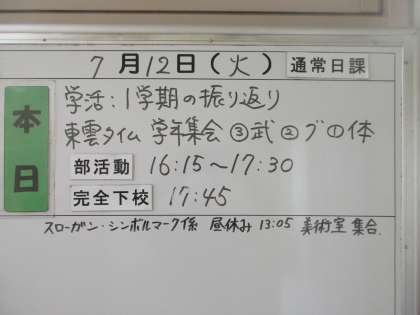 7月12日(火) 通常日課
本日
学活:1学期の振り返り
東雲タイム 学年集会 ③武 ②ブ ①体
部活動 16:15~17:30
完全下校 17:45
スローガン・シンボルマーク係 昼休み 13:05 美術室 集合.